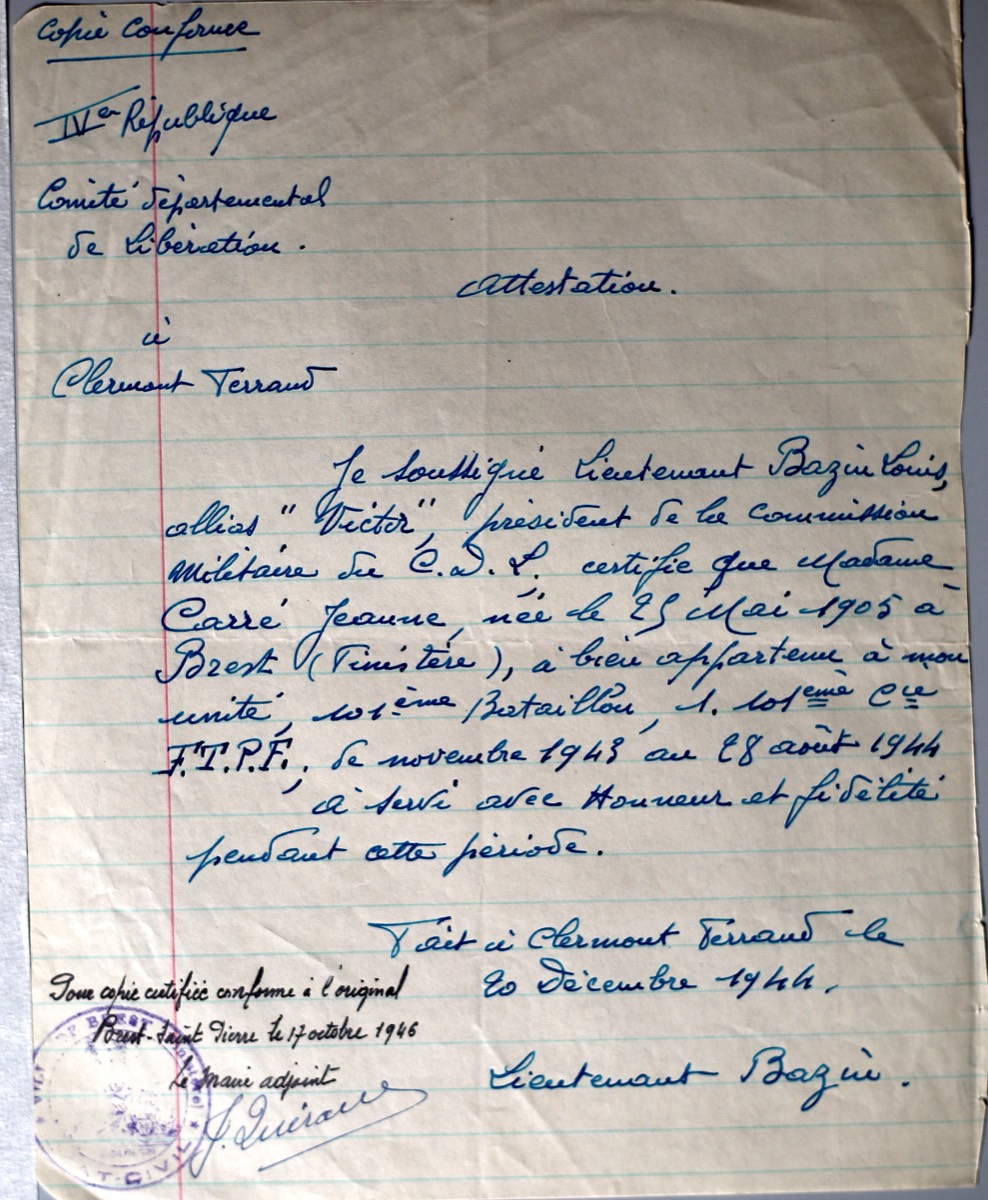 Copie Conforme
IVem République
Comité départemental
de Libération.
Attestation.
à
Clermont Ferrand
Je soussigné Lieutenant Bazin Louis,
allias "Victor", président de la Commission
Militaire du C.D.L., certifie que Madame
Carré Jeanne, née le 25 Mai 1905 à
Brest (Finistère), à bien appartenu à mon
unité, 101ème Bataillon, 1. 101ème Cie
F.T.P.F., de novembre 1943 au 28 août 1944
à servi avec Honneur et fidélité
pendant cette période.
Fait à Clermont Ferrand le
20 Décembre 1944.
Lieutenant Bazin.
Pour copie certifiée conforme à l'original
Brest-Saint Pierre le 17 octobre 1946
Le Maire adjoint
BREST